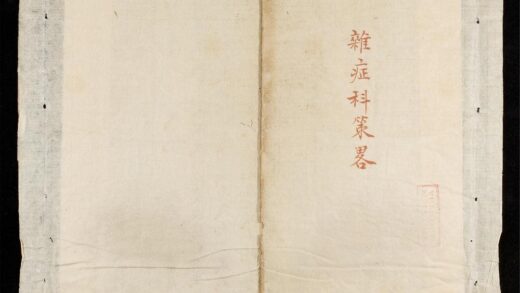 雜症科策畧